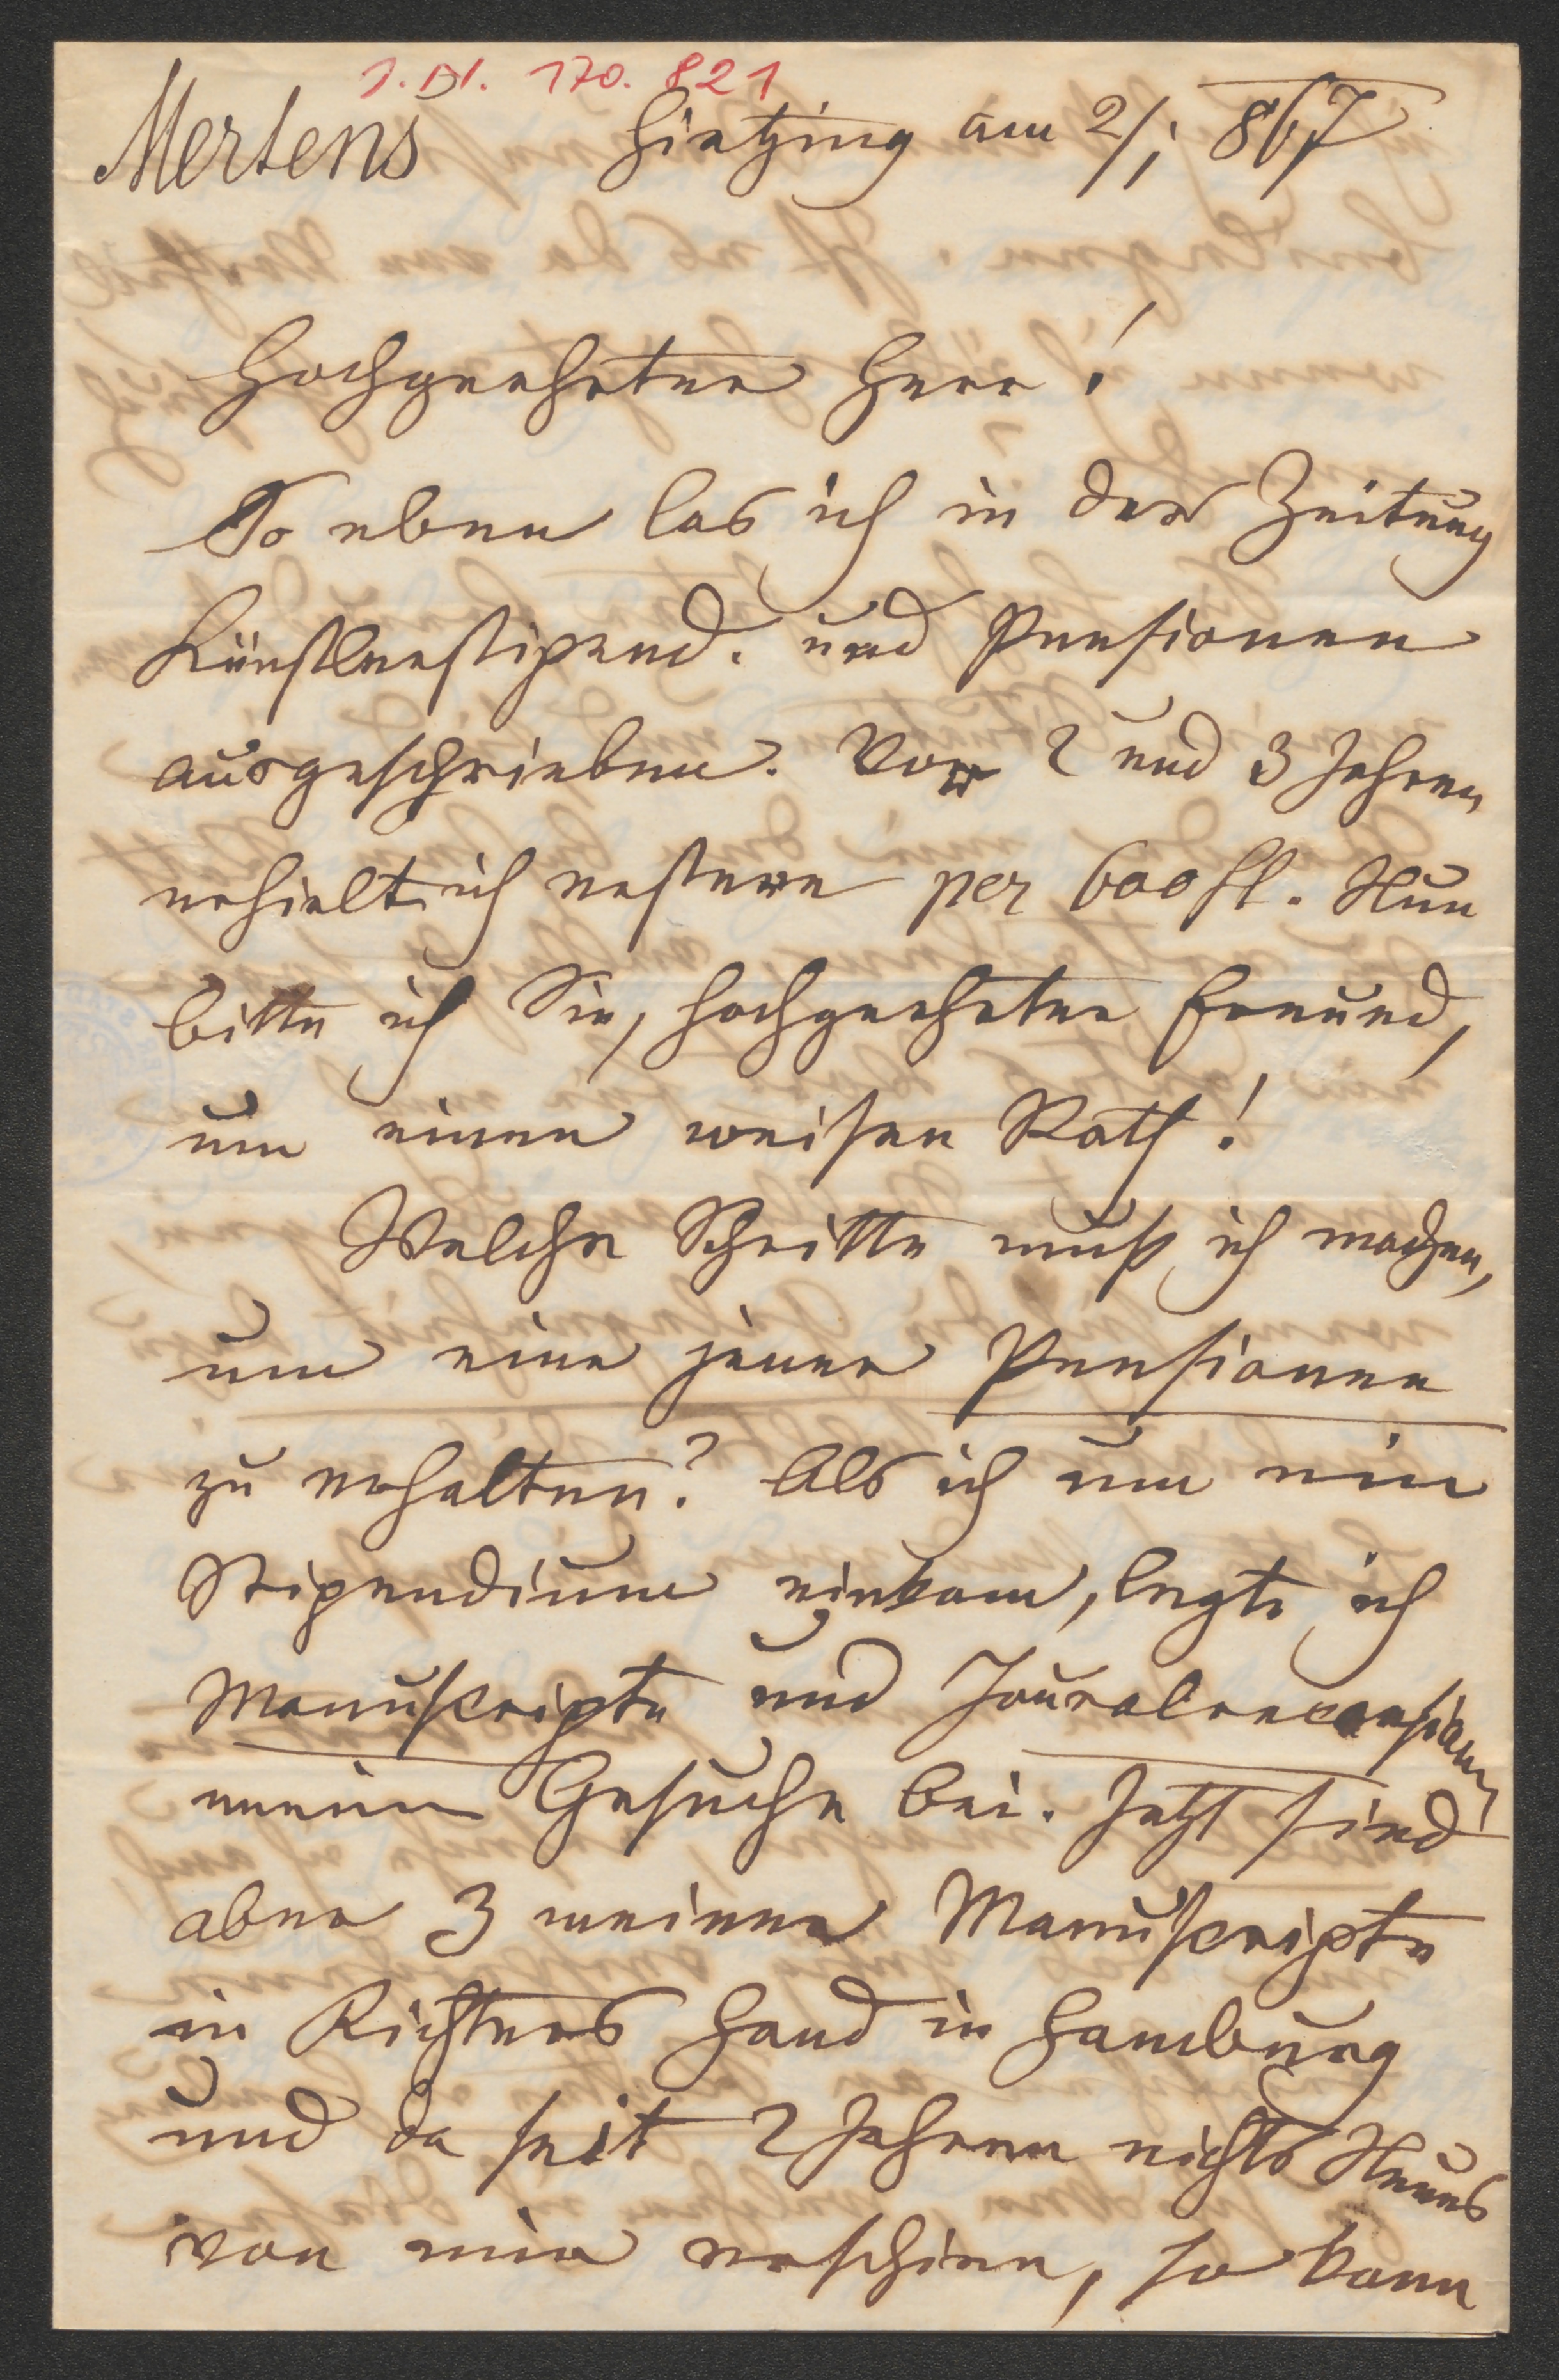 J. N. 170.821
Mertens Hietzing am 2/1 867
Hochgeehrter Herr!
So eben las ich in der Zeitung
Künstlerstipend. und Pensionen
ausgeschrieben. Vor 2 und 3 Jahren
erhielt ich erstere per 600 fl. Nun
bitte ich Sie, hochgeehrter Freund,
um einen weisen Rath!
Welche Schritte muß ich machen,
um eine jener Pensionen
zu erhalten? Als ich um ein
Stipendium einkam, legte ich
Manuskripte und Jouralrecensionen
meinem Gesuche bei. Jetzt sind
aber 3 meiner Manuskripte
in Richters Hand in Hamburg
und da seit 2 Jahren nichts Neues
von mir erschien, so kann